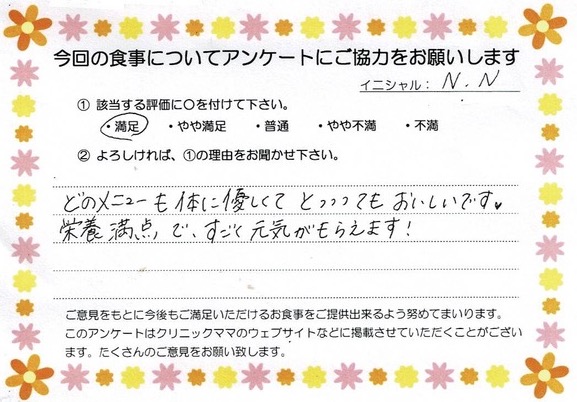 今回の食事についてアンケートにご協力をお願いします
イニシャル: N.N
① 該当する評価に〇を付けて下さい。
・満足 ・やや満足 ・普通 ・やや不満 ・不満
② よろしければ、①の理由をお聞かせ下さい。
どのメニューも体に優しくて とっっってもおいしいです♥
栄養満点で、すごく元気がもらえます!
ご意見をもとに今後もご満足いただけるお食事をご提供出来るよう努めてまいります。
このアンケートはクリニックママのウェブサイトなどに掲載させていただくことがござい
ます。たくさんのご意見をお願い致します。